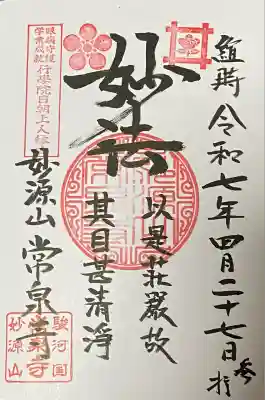 維時 令和七年四月二十七日 参拝
妙法
以是荘厳故
其目甚清浄
妙源山 常泉寺
眼病守護
学業成就
行学院日朝上人
駿河国
常泉寺
妙源山